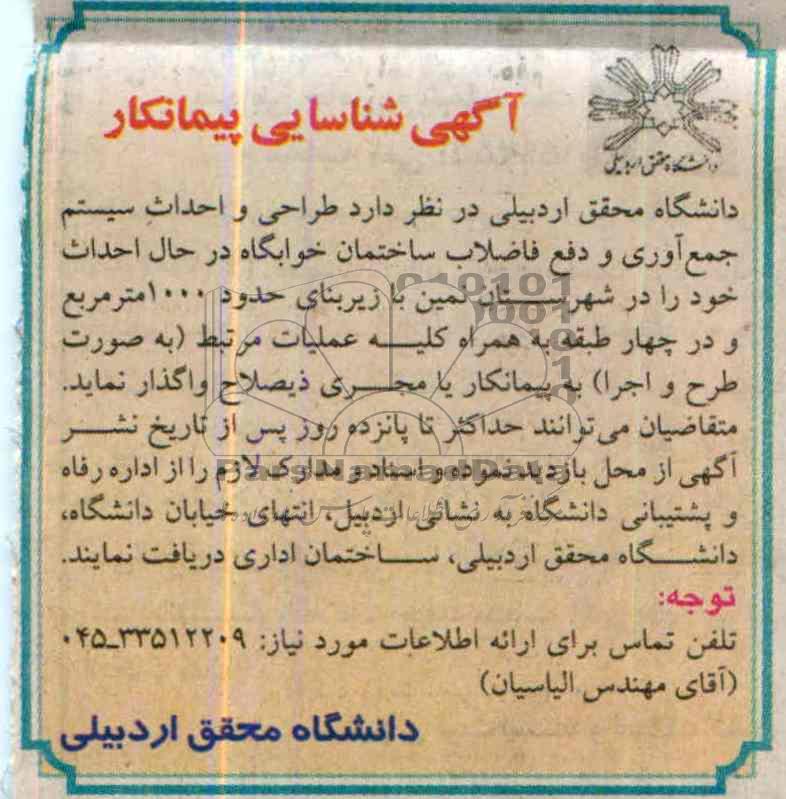 دانشگاه محقق اردبیلی
آگهی شناسایی پیمانکار
دانشگاه محقق اردبیلی در نظر دارد طراحی و احداث سیستم
جمع‌آوری و دفع فاضلاب ساختمان خوابگاه در حال احداث
خود را در شهرستان نمین با زیربنای حدود ۱۰۰۰مترمربع
و در چهار طبقه به همراه کلیه عملیات مرتبط (به صورت
طرح و اجرا) به پیمانکار یا مجری ذیصلاح واگذار نماید.
متقاضیان می‌توانند حداکثر تا پانزده روز پس از تاریخ نشر
آگهی از محل بازدید نموده و اسناد و مدارک لازم را از اداره رفاه
و پشتیبانی دانشگاه به نشانی اردبیل، انتهای خیابان دانشگاه،
دانشگاه محقق اردبیلی، ساختمان اداری دریافت نمایند.
توجه:
تلفن تماس برای ارائه اطلاعات مورد نیاز: ۳۳۵۱۲۲۰۹_۰۴۵
(آقای مهندس الیاسیان)
دانشگاه محقق اردبیلی
ParsNamadData